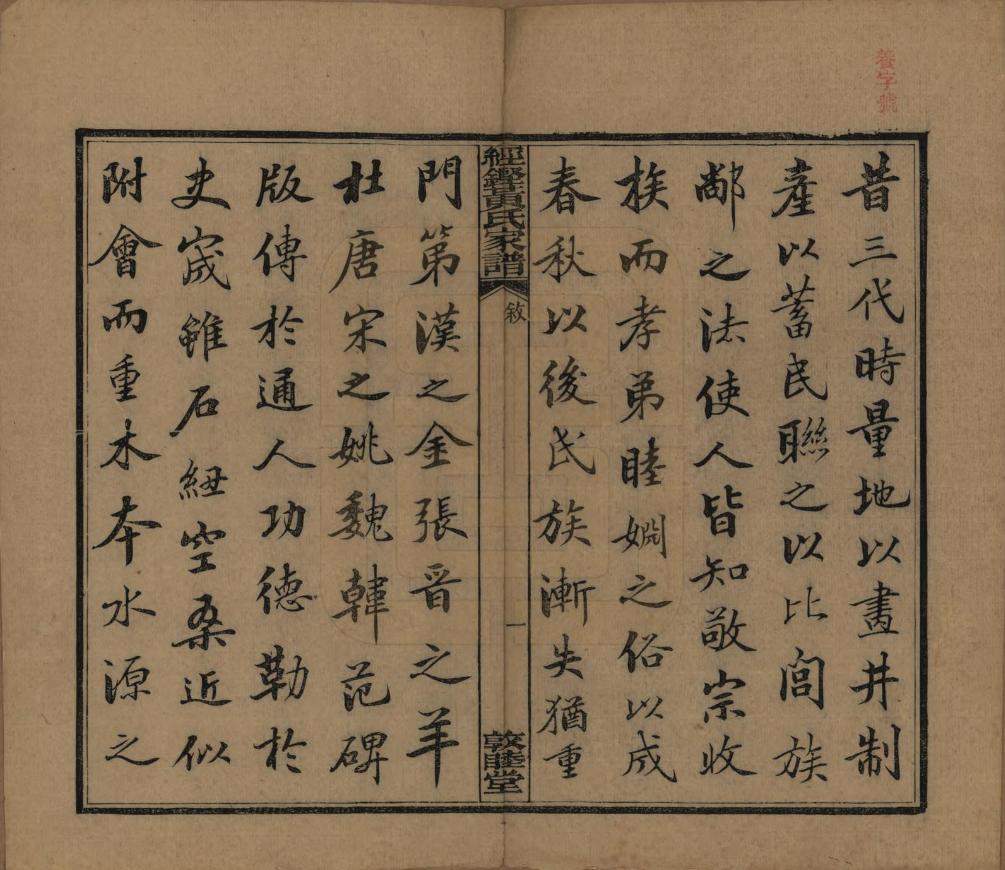 養字號
昔三代時量地以畫井制
產以蓄民聯之以比閭族
鄰之法使人皆知敬宗收
族而孝弟睦婣之俗以成
春秋以後氏族漸失猶重
經鏗黃氏家譜
敘
一
敦睦堂
門第漢之金張晉之羊
杜唐宋之姚魏韓范碑
版傳於通人功德勒於
史宬雖石紐空桑近似
附會而重木本水源之